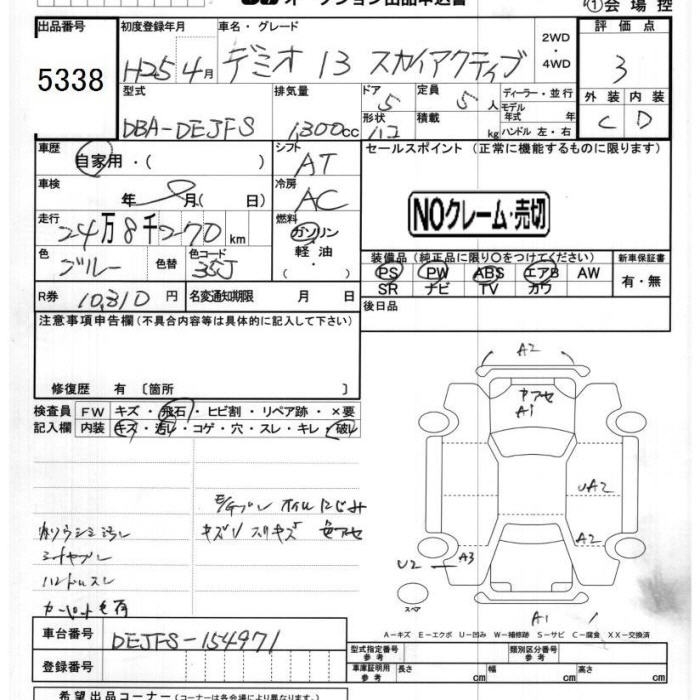 オークション出品申込書
①会場控
出品番号 初度登録年月 車名・グレード 2WD・4WD 評価点
5338 H25 4月 デミオ 13 スカイアクティブ 3
型式 排気量 ドア 5 定員 5人 ディーラー・並行 外装 内装
DBA-DEJFS 1300cc 形状 積載 kg モデル年式 年 ハンドル 左・右 C D
車歴 シフト セールスポイント (正常に機能するものに限ります)
自家用・( ) AT
車検 冷房
年 月( 日) AC
NOクレーム・売切
走行 燃料
24万8千270km ガソリン 軽油
色 色替 色コード 装備品 (純正品に限り○をつけてください) 新車保証書
ブルー 35J PS PW ABS エアB AW 有・無
SR ナビ TV カワ
R券 10,310円 名変通知期限 月 日 後日品
注意事項申告欄 (不具合内容等は具体的に記入して下さい)
修復歴 有 〔箇所 〕
検査員 FW キズ・飛石・ヒビ割・リペア跡・×要
記入欄 内装 キズ・汚レ・コゲ・穴・スレ・キレ・破レ
A2
A1
UA2
A2
U2
A3
A1
スペア
オイルにじみ
キズU スリキズ 色アセ
シートヤブレ
ハンドルスレ
A-キズ E-エクボ U-凹み W-補修跡 S-サビ C-腐食 XX-交換済
車台番号 DEJFS-154971
型式指定番号 参考 類別区分番号 参考
登録番号 車庫証明用 参考 長さ cm 幅 cm 高さ cm
希望出品コーナー (コーナーは各会場により異なります。)